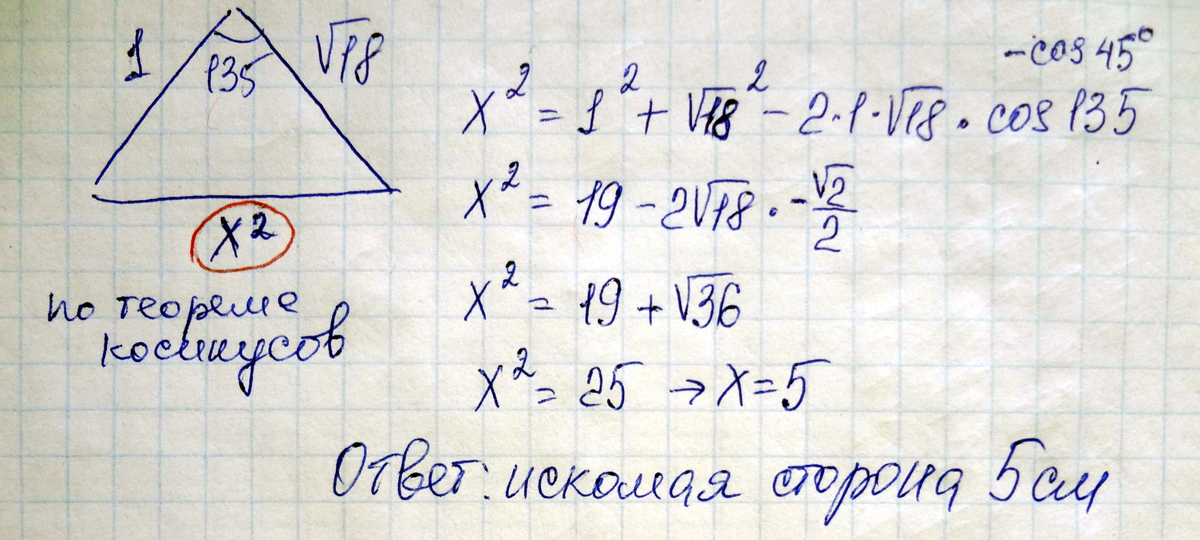 1
135
√18
x²
по теореме
косинусов
-cos 45°
x² = 1² + √18² - 2·1·√18 · cos 135
x² = 19 - 2√18 · -√2/2
x² = 19 + √36
x² = 25 → x = 5
Ответ: искомая сторона 5 см